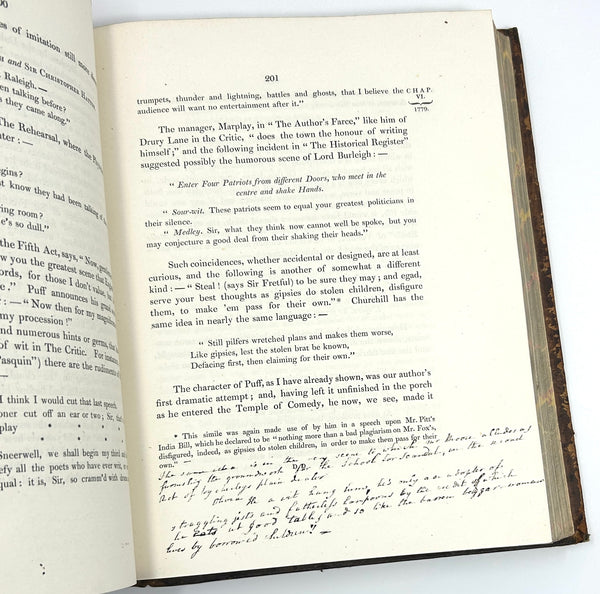 00
es of imitation still more
and SIR CHRISTOPHER HATTON
Raleigh. —
en talking before?
s they came along."
The Rehearsal, where the
ter: —
gins?
st know they had been talking of
ring room?
he's so dull."
the Fifth Act, says, "Now
you the greatest scene that
ords, for those I don't value, but
e." Puff announces his
: — "Now then for my magnificence!
my procession!"
and numerous hints or germs, that
of wit in The Critic. For instance
"Pasquin") there are the rudiments of
I think I would cut that last speech.
ooner cut off an ear or two; Sir, that's
play
Sneerwell, we shall begin my third
efy all the poets who have ever writ, or
equal: it is, Sir, so cramm'd with drums
201
trumpets, thunder and lightning, battles and ghosts, that I believe the
audience will want no entertainment after it."
CHAP.
VI.
1779.
The manager, Marplay, in "The Author's Farce," like him of
Drury Lane in the Critic, "does the town the honour of writing
himself;" and the following incident in "The Historical Register"
suggested possibly the humorous scene of Lord Burleigh: —
"Enter Four Patriots from different Doors, who meet in the
centre and shake Hands.
"Sour-wit. These patriots seem to equal your greatest politicians in
their silence.
"Medley. Sir, what they think now cannot well be spoke, but you
may conjecture a good deal from their shaking their heads."
Such coincidences, whether accidental or designed, are at least
curious, and the following is another of somewhat a different
kind: — "Steal! (says Sir Fretful) to be sure they may; and egad,
serve your best thoughts as gipsies do stolen children, disfigure
them, to make 'em pass for their own."* Churchill has the
same idea in nearly the same language: —
"Still pilfers wretched plans and makes them worse,
Like gipsies, lest the stolen brat be known,
Defacing first, then claiming for their own."
The character of Puff, as I have already shown, was our author's
first dramatic attempt; and, having left it unfinished in the porch
as he entered the Temple of Comedy, he now, we see, made it
* This simile was again made use of by him in a speech upon Mr. Pitt's
India Bill, which he declared to be "nothing more than a bad plagiarism on Mr. Fox's,
disfigured, indeed, as gipsies do stolen children, in order to make them pass for their
own."
The same idea is in the very scene to which Mr Moore alludes as
forming the groundwork of the School for Scandal, in the second
Act of Wycherleys plain dealer
a wit hang him, he's only an adopter of
straggling jests and fatherless lampoons by the credit of which
he eats at good tables, and so like the barren beggar-woman
lives by borrowed children"! —